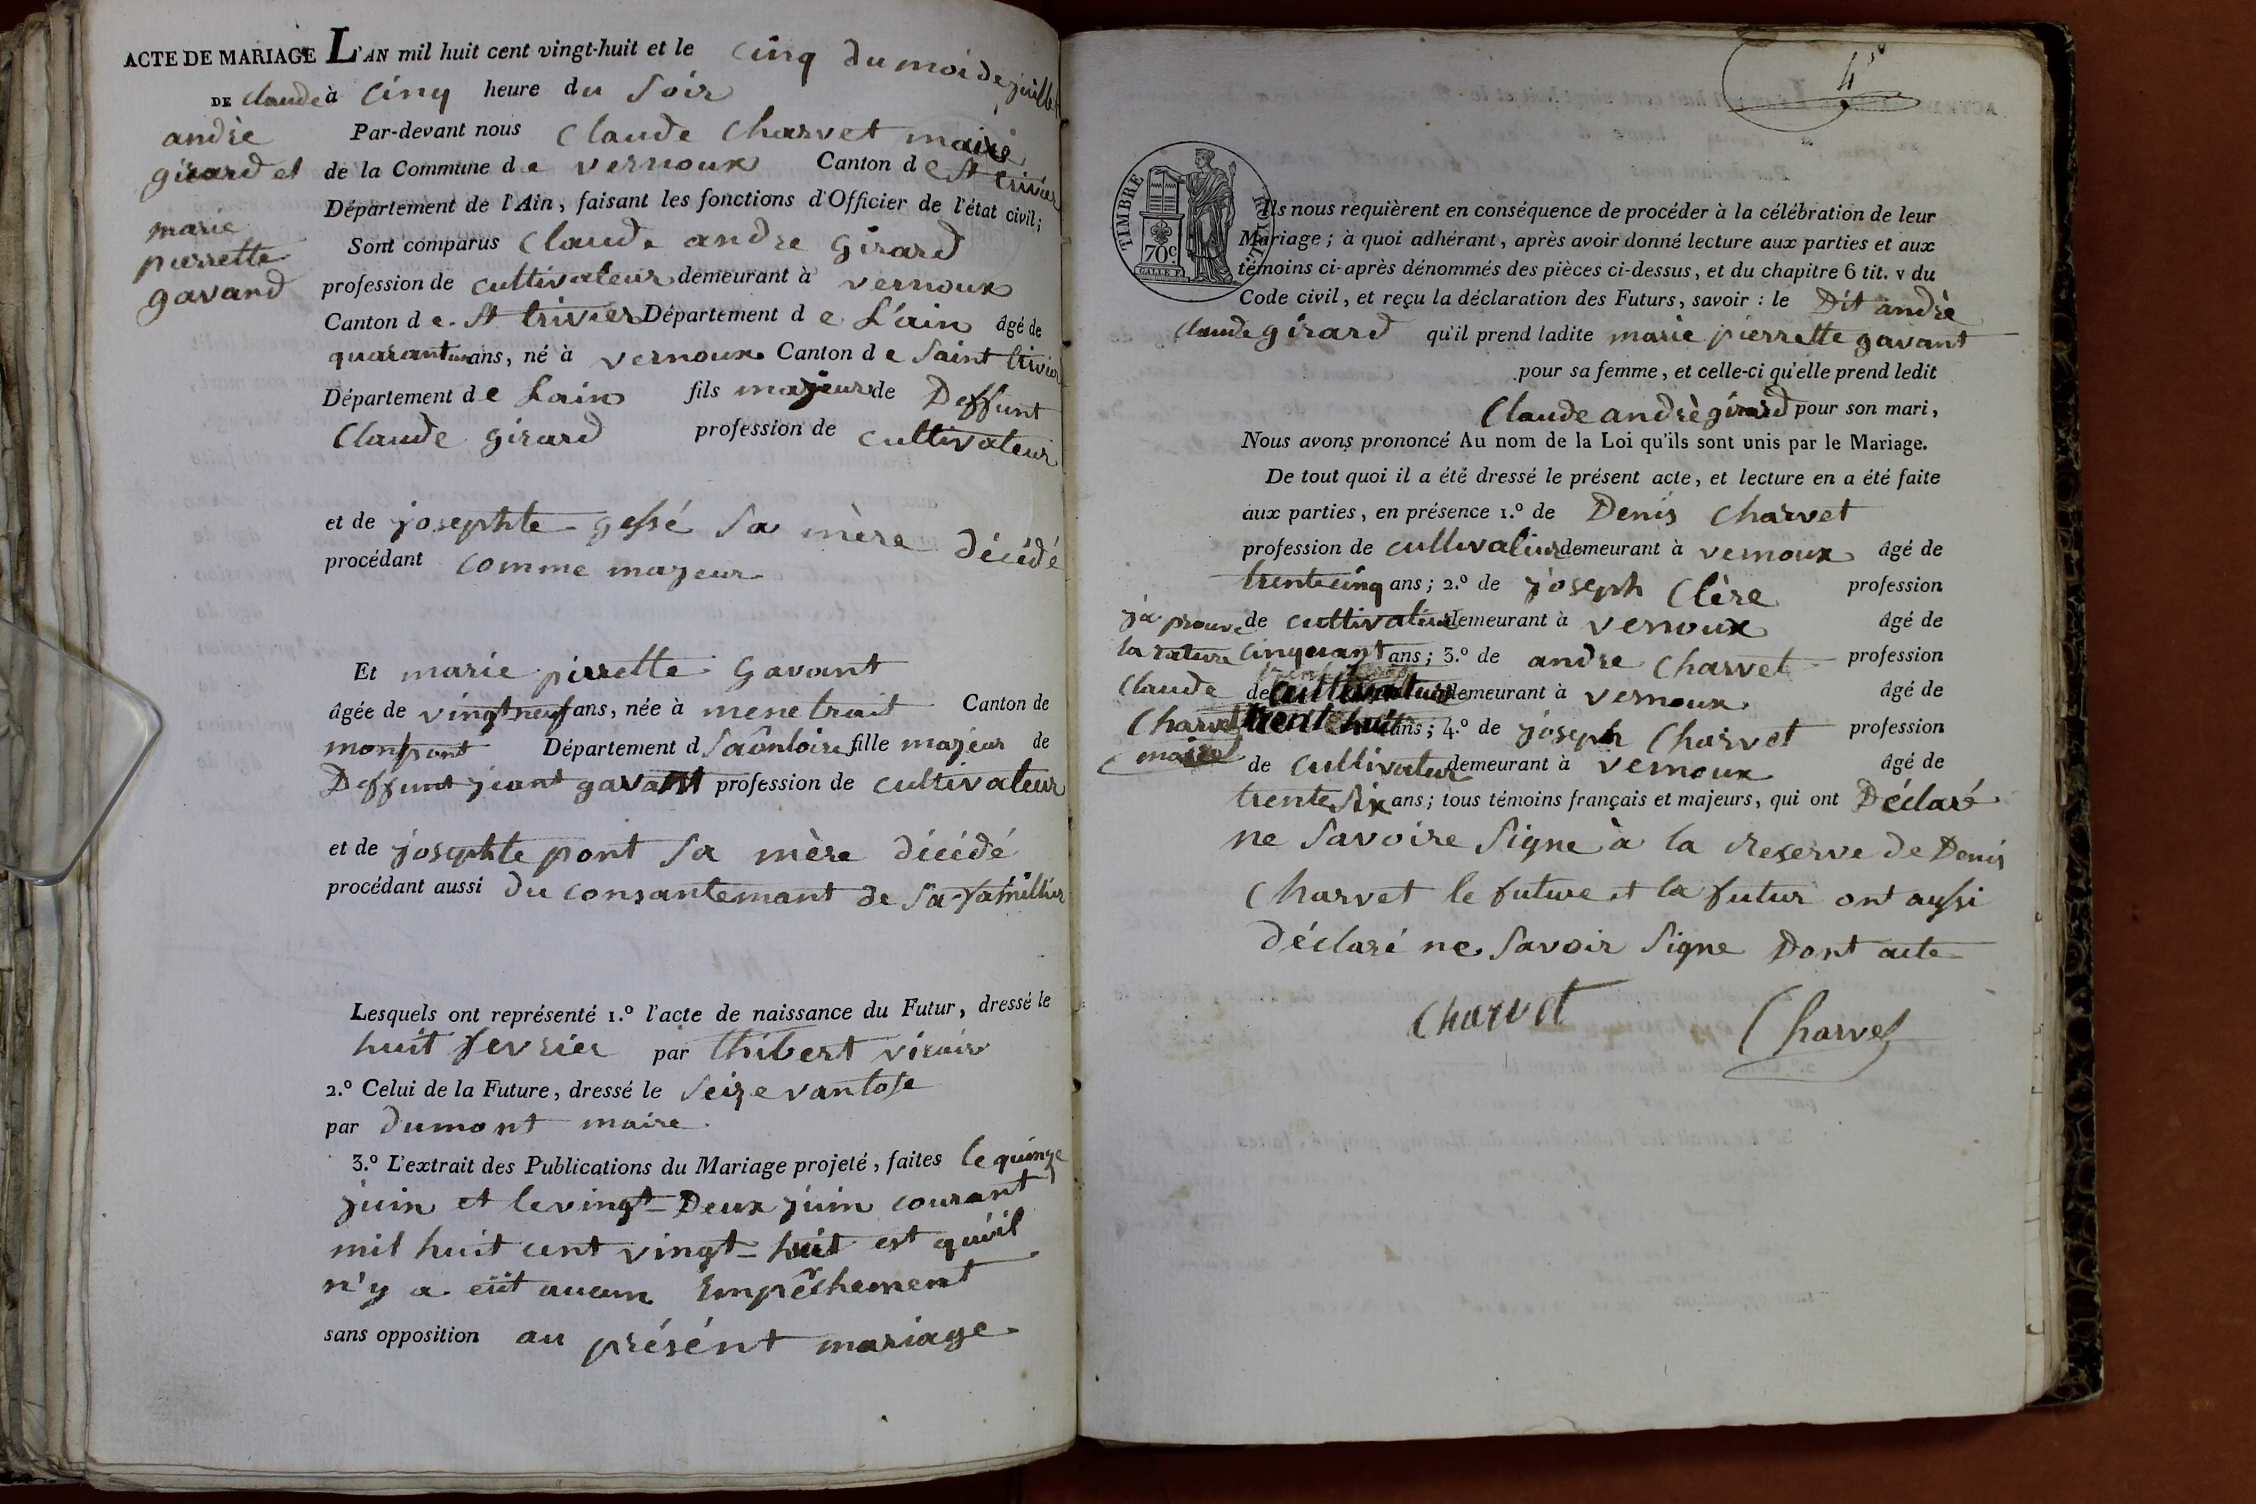 ACTE DE MARIAGE L'AN mil huit cent vingt-huit et le cinq du moi de juillet
DE Claude à cinq heure du soir
andrè
girard et
marie
pierrette
gavand
Par-devant nous Claude Charvet maire
de la Commune de vernoux Canton de St trivier
Département de l'Ain, faisant les fonctions d'Officier de l'état civil;
Sont comparus Claude andre girard
profession de cultivateur demeurant à vernoux
Canton de St trivier Département de L'ain âgé de
ans, né à vernoux Canton de Saint trivier
Département de Lain fils majeur de Deffunt
Claude girard profession de cultivateur
et de josephte gessé sa mère décédé
procédant comme majeur
Et marie pierrette gavant
âgée de vingt neuf ans, née à menetrait Canton de
monpont Département d Saônloire fille majeur de
Deffunt jeant gavant profession de cultivateur
et de josephte pont sa mère décédé
procédant aussi du consantemant de sa famillier
Lesquels ont représenté 1.º l'acte de naissance du Futur, dressé le
huit fevrier par thibert vicair
2.º Celui de la Future, dressé le seize vantose
par dumont maire
3.º L'extrait des Publications du Mariage projeté, faites le quinze
juin et le vingt-Deux juin courant
mil huit cent vingt-huit est qu'il
n'y a eüt aucun Empêchement
sans opposition au présént mariage
4e
TIMBRE ROYAL
70c
GALLE F.
Ils nous requièrent en conséquence de procéder à la célébration de leur
Mariage; à quoi adhérant, après avoir donné lecture aux parties et aux
témoins ci-après dénommés des pièces ci-dessus, et du chapitre 6 tit. v du
Code civil, et reçu la déclaration des Futurs, savoir : le Dit andrè
claude girard qu'il prend ladite marie pierrette gavant
pour sa femme, et celle-ci qu'elle prend ledit
Claude andrè girard pour son mari,
Nous avons prononcé Au nom de la Loi qu'ils sont unis par le Mariage.
De tout quoi il a été dressé le présent acte, et lecture en a été faite
aux parties, en présence 1.º de Denis Charvet
profession de cultivateur demeurant à vernoux âgé de
trente cinq ans; 2.º de joseph Clère profession
de cultivateur demeurant à vernoux âgé de
cinquant ans; 3.º de andre Charvet profession
de cultivateur demeurant à vernoux âgé de
trent huit ans; 4.º de joseph Charvet profession
de cultivateur demeurant à vernoux âgé de
trente six ans; tous témoins français et majeurs, qui ont Déclaré
ne savoire signe à la reserve de Denis
Charvet le future et la futur ont aussi
déclaré ne savoir signe Dont acte
ja prouve
la rature
Claude
Charvet
maire
Charvet Charvet